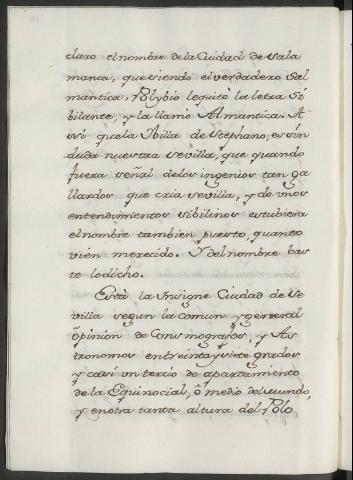 claro el nombre de la Ciudad de Sala
manca, que siendo el verdadero Sal
mantica, Polybio le quitò la letra Si
bilante, y la llamò Almantica. A
ssi que la Ailla de Stephano, es sin
duda nuestra Sevilla, que quando
fuera señal de los ingenios tan ga
llardos que cria Sevilla, y de unos
entendimientos sibilinos estubiera
el nombre tambien puesto, quanto
vien merecido. Y del nombre bas
te lo dicho.
Està la Insigne Ciudad de Se
villa segun la comun, y general
opinion de Cosmografos, y As
tronomos en treinta y siete grados
y casi un tercio de apartamiento
de la Equinocial, ò medio del mundo,
y en otra tanta altura del Polo